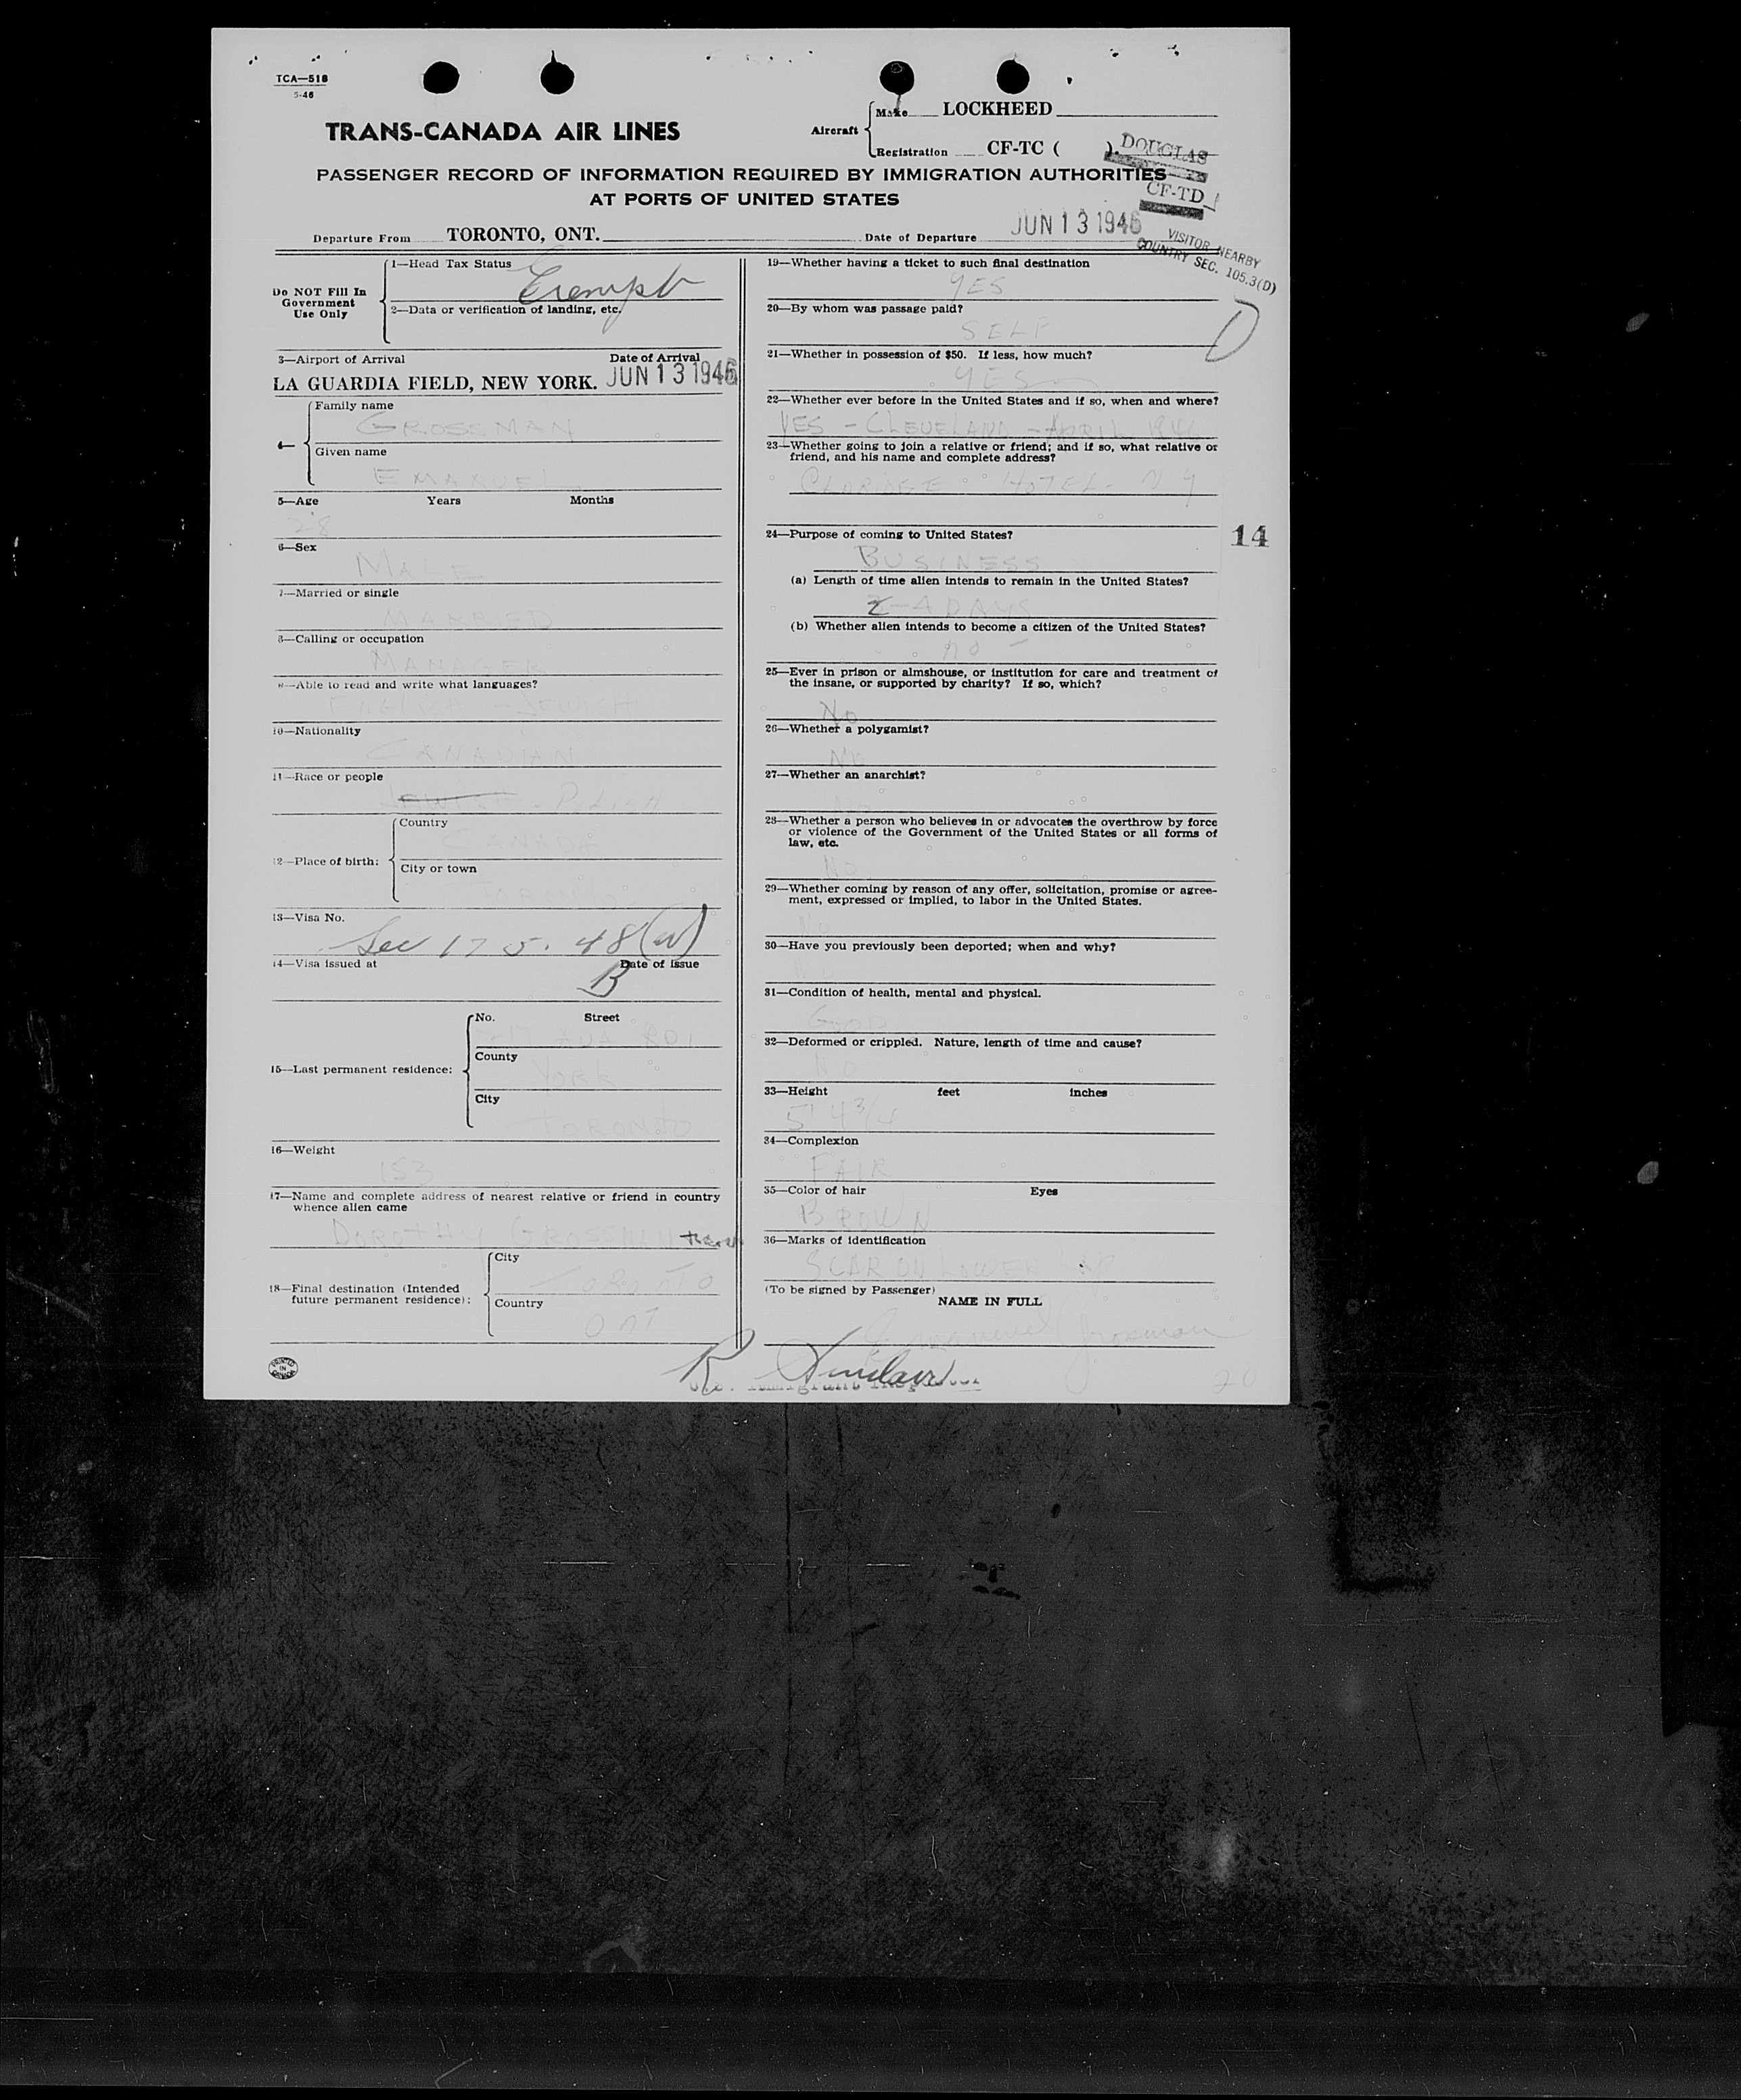 TCA—518
5-46
TRANS-CANADA AIR LINES
Aircraft
Make LOCKHEED
Registration CF-TC ( ).
DOUGLAS
CF-TD
PASSENGER RECORD OF INFORMATION REQUIRED BY IMMIGRATION AUTHORITIES
AT PORTS OF UNITED STATES
Departure From TORONTO, ONT. Date of Departure JUN 13 1946
VISITOR NEARBY
COUNTRY SEC. 105.3(D)
Do NOT Fill In
Government
Use Only
1—Head Tax Status
Exempt
2—Data or verification of landing, etc.
3—Airport of Arrival Date of Arrival
LA GUARDIA FIELD, NEW YORK. JUN 13 1946
4—
Family name
GROSSMAN
Given name
EMANUEL
5—Age Years Months
28
6—Sex
MALE
7—Married or single
MARRIED
8—Calling or occupation
MANAGER
9—Able to read and write what languages?
ENGLISH - JEWISH
10—Nationality
CANADIAN
11—Race or people
JEWISH - POLISH
12—Place of birth:
Country
CANADA
City or town
TORONTO
13—Visa No.
Sec 175.48(a)
14—Visa issued at Date of issue
B
15—Last permanent residence:
No. Street
County
YORK
City
TORONTO
16—Weight
153
17—Name and complete address of nearest relative or friend in country
whence alien came
DOROTHY GROSSMAN
18—Final destination (Intended
future permanent residence):
City
TORONTO
Country
ONT
19—Whether having a ticket to such final destination
YES
20—By whom was passage paid?
SELF
D
21—Whether in possession of $50. If less, how much?
YES
22—Whether ever before in the United States and if so, when and where?
YES - CLEVELAND - APRIL 1946
23—Whether going to join a relative or friend; and if so, what relative or
friend, and his name and complete address?
CLARIDGE HOTEL - NY
24—Purpose of coming to United States?
14
BUSINESS
(a) Length of time alien intends to remain in the United States?
2-4 DAYS
(b) Whether alien intends to become a citizen of the United States?
no -
25—Ever in prison or almshouse, or institution for care and treatment of
the insane, or supported by charity? If so, which?
No
26—Whether a polygamist?
No
27—Whether an anarchist?
No
28—Whether a person who believes in or advocates the overthrow by force
or violence of the Government of the United States or all forms of
law, etc.
No
29—Whether coming by reason of any offer, solicitation, promise or agree-
ment, expressed or implied, to labor in the United States.
No
30—Have you previously been deported; when and why?
No
31—Condition of health, mental and physical.
GOOD
32—Deformed or crippled. Nature, length of time and cause?
NO
33—Height feet inches
5' 4 3/4
34—Complexion
FAIR
35—Color of hair Eyes
BROWN
36—Marks of identification
SCAR ON LOWER LIP
(To be signed by Passenger)
NAME IN FULL
Emanuel Grossman
R Sinclair
U.S. Immigrant Inspector
20
PRINTED
IN
CANADA